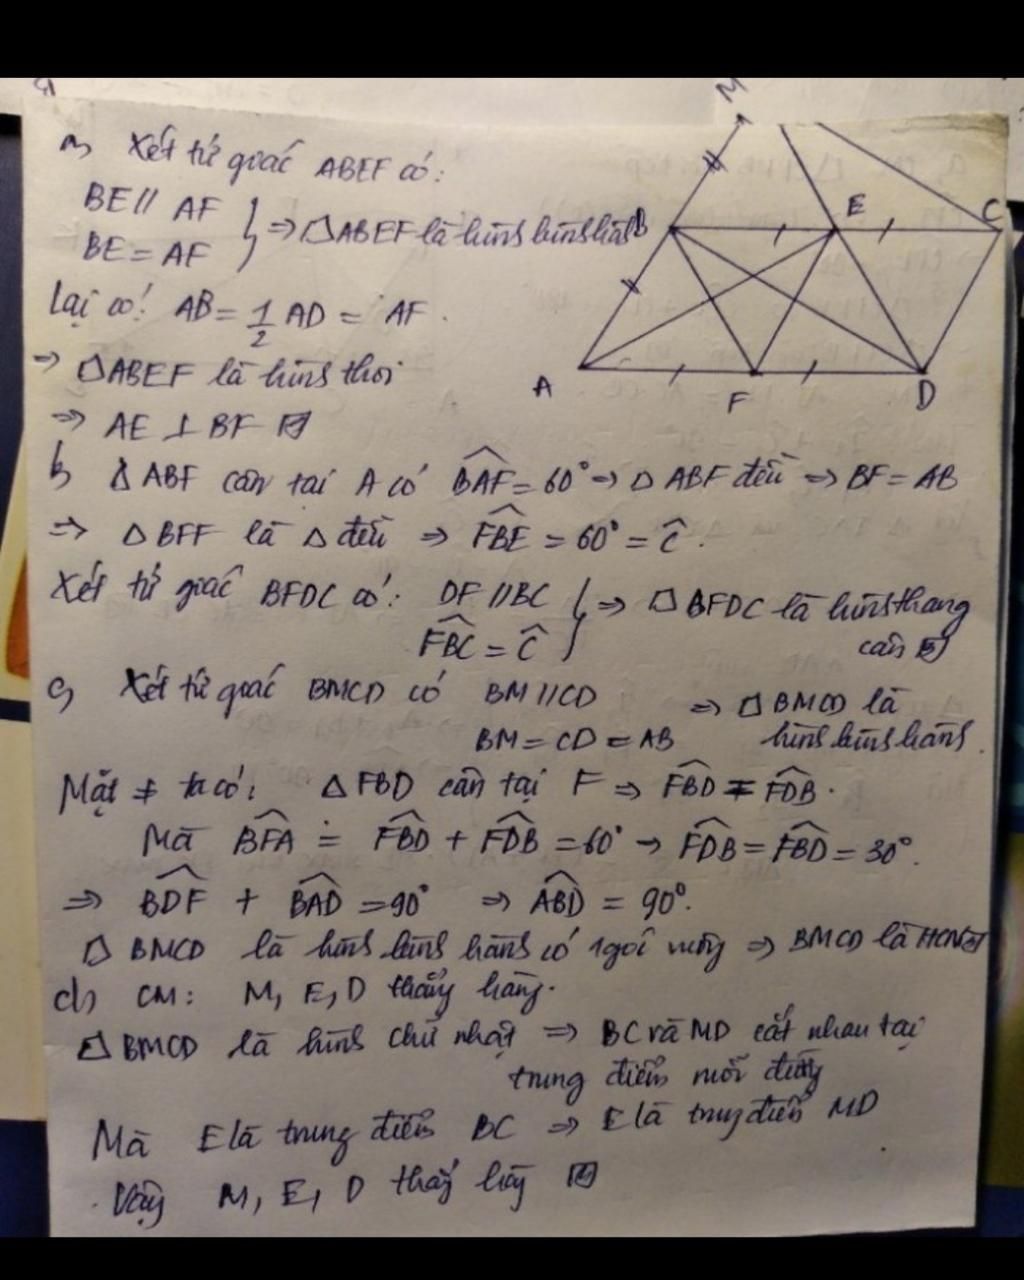 a, Xét tứ giác ABEF có:
BE // AF
BE = AF } ⇒ ▱ABEF là hình bình hành
Lại có: AB = 1/2 AD = AF.
⇒ ▱ABEF là hình thoi
⇒ AE ⊥ BF
b, Δ ABF cân tại A có BAF = 60° ⇒ Δ ABF đều ⇒ BF = AB
⇒ Δ BFF là Δ đều ⇒ FBE = 60° = Ĉ.
Xét tứ giác BFDC có: DF // BC } ⇒ ▱ BFDC là hình thang
FBC = Ĉ cân
c, Xét tứ giác BMCD có BM // CD ⇒ ▱ BMCD là
BM = CD = AB hình bình hành.
Mặt ≠ ta có: Δ FBD cân tại F ⇒ FBD = FDB.
Mà BFA = FBD + FDB = 60° → FDB = FBD = 30°.
⇒ BDF + BAD = 90° ⇒ ABD = 90°.
▱ BMCD là hình bình hành có 1 góc vuông ⇒ BMCD là HCN
d, CM: M, E, D thẳng hàng.
▱ BMCD là hình chữ nhật ⇒ BC và MD cắt nhau tại
trung điểm mỗi đường
Mà E là trung điểm BC ⇒ E là trung điểm MD
Vậy M, E, D thẳng hàng
M
B
E
C
A
F
D